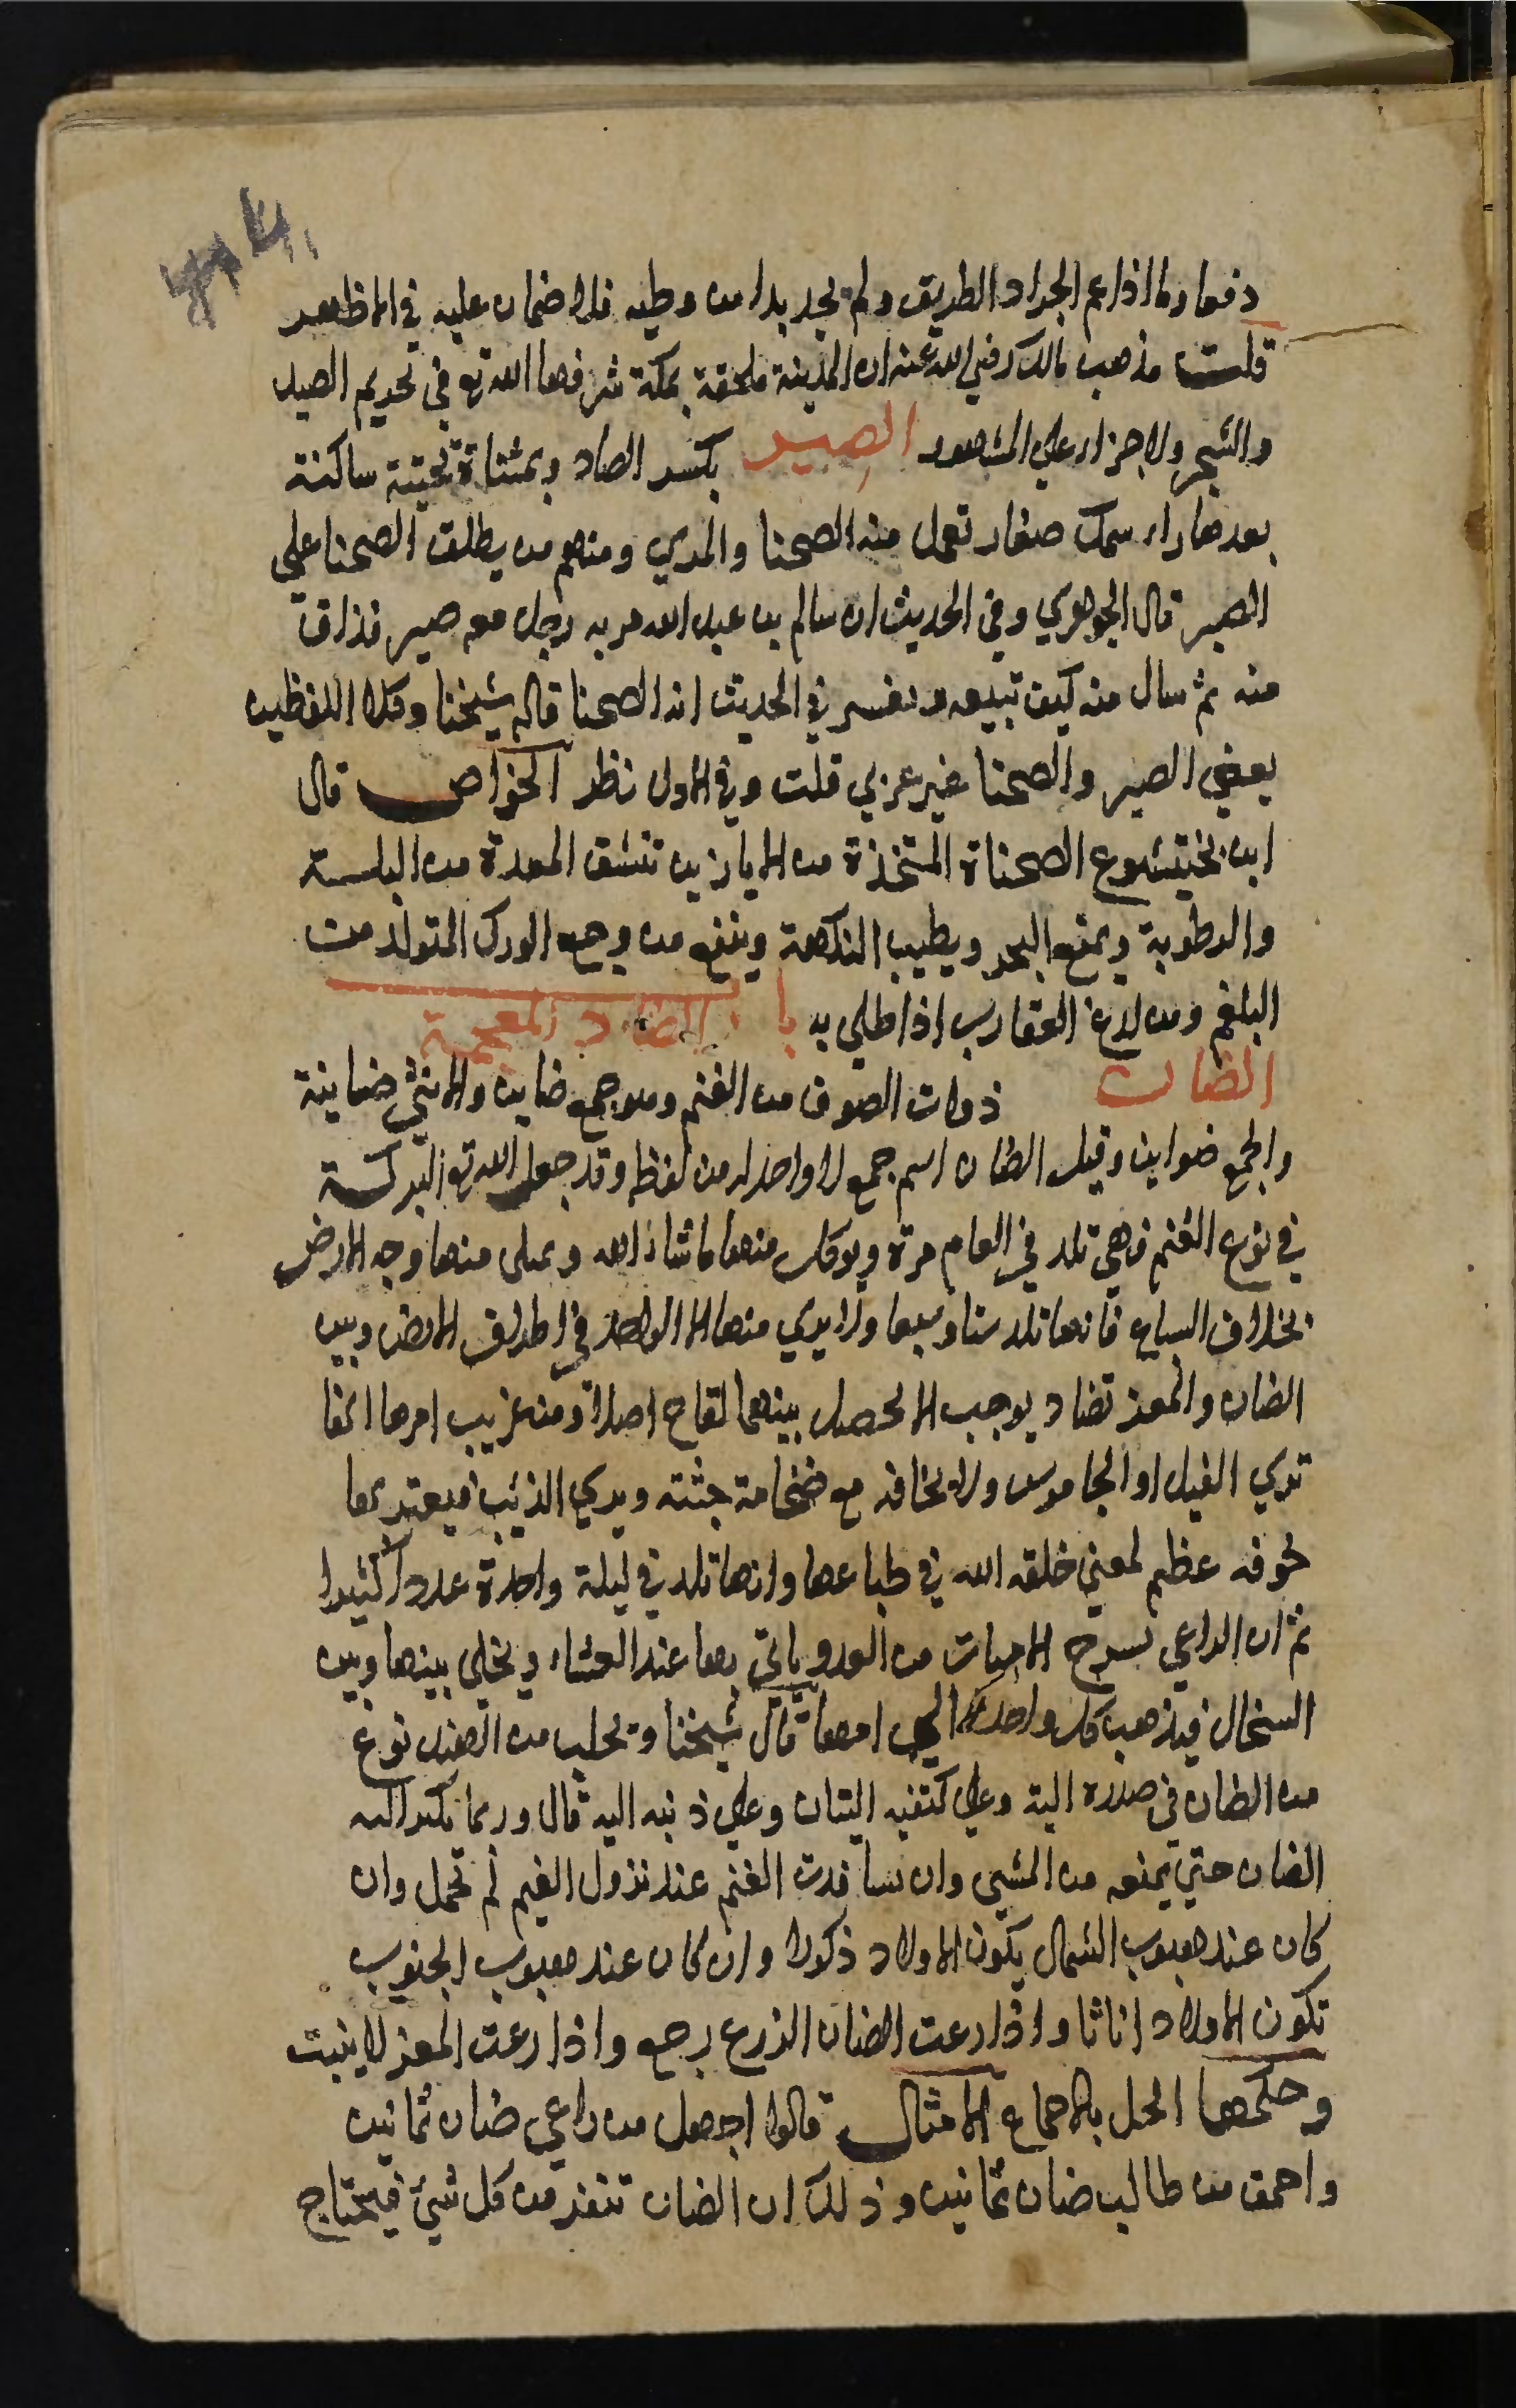 دفعا ولما اذا عم الجراد الطريق ولم يجد بدا من وطيه فلا ضمان عليه في الاظهر
قلت مذهب مالك رضي الله عنه ان المدينة ملحقة بمكة شرفها الله تع في تحريم الصيد
والشجر ولا جزاء علي المشهور الصير بكسر الصاد وبمثناة تحتية ساكنة
بعدها راء سمك صغار تعمل منه الصحنا والمري ومنهم من يطلق الصحنا علي
الصير قال الجوهري وفي الحديث ان سالم بن عبد الله مر به رجل معه صير فذاق
منه ثم سال منه كيف تبيعه وتفسر في الحديث انه الصحنا قاله شيخنا وكلا اللفظين
يعني الصير والصحنا غير عربي قلت وفي الاول نظر الخواص قال
ابن بختيشوع الصحناة المتخذة من الابازير تنشف المعدة من البلة
والرطوبة ويمنع البخر ويطيب النكهة وينفع من وجع الورك المتولد من
البلغم ومن لدغ العقارب اذا طلي به باب الضاد المعجمة
الضان ذوات الصوف من الغنم وهو جمع ضاين والانثي ضاينة
والجمع ضواين وقيل الضان اسم جمع لا واحد له من لفظه وقد جعل الله تع البركة
في نوع الغنم فهي تلد في العام مرة ويوكل منها ما شاء الله ويملي منها وجه الارض
بخلاف السباع فانها تلد ستا وسبعا ولا يري منها الا الواحد في اطراف الارض وبين
الضان والمعز تضاد يوجب الا يحصل بينهما لقاح اصلا ومن غريب امرها انها
تري الفيل او الجاموس ولا تخافه مع ضخامة جثته ويري الذئب فيعتريها
خوف عظيم لمعني خلقه الله في طباعها وانها تلد في ليلة واحدة عددا كثيرا
ثم ان الراعي يسرح الامهات من الغد وياتي بها عند العشاء ويخلي بينها وبين
السخال فيذهب كل واحد الي امها قال شيخنا ويجلب من الهند نوع
من الضان في صدره الية وعلي كتفيه اليتان وعلي ذنبه الية قال وربما تكبر الية
الضان حتي يمنعه من المشي وان تسافدت الغنم عند نزول الغيم لم تحمل وان
كان عند هبوب الشمال يكون الاولاد ذكورا وان كان عند هبوب الجنوب
تكون الاولاد اناثا واذا رعت الضان الزرع رجع واذا رعت المعز لا ينبت
وحكمها الحل بالاجماع الامثال قالوا اجهل من راعي ضان ثمانين
واحمق من طالب ضان ثمانين وذلك ان الضان تنفر من كل شيء فيحتاج